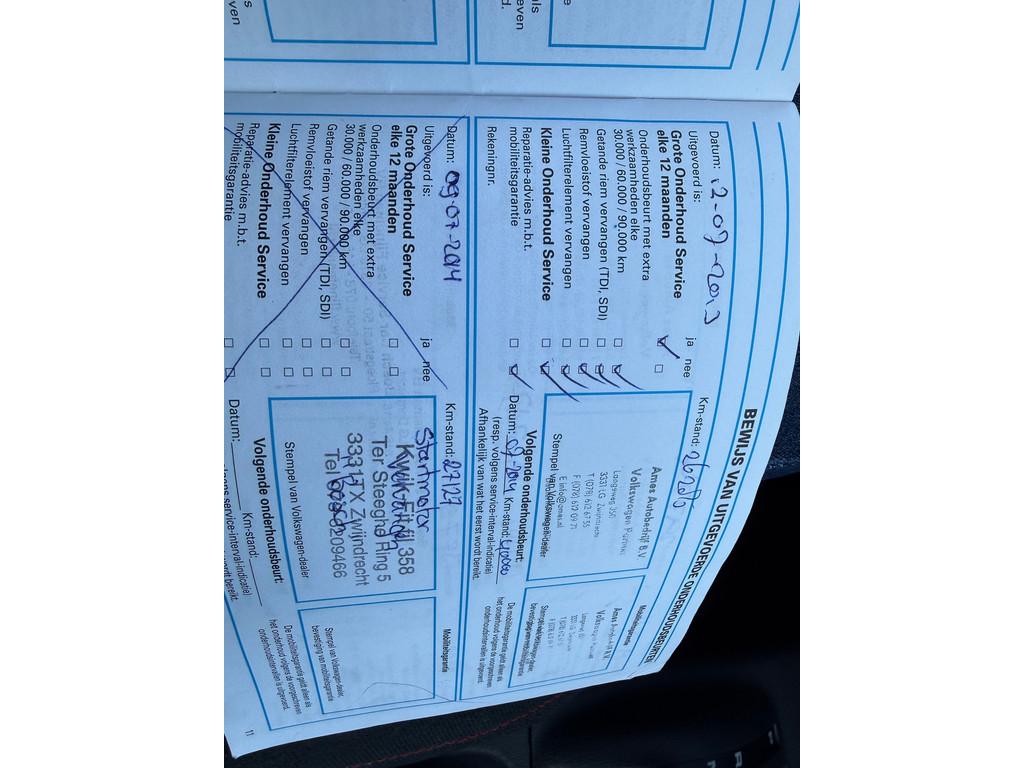 BEWIJS VAN UITGEVOERDE ONDERHOUDSBEURTEN
Datum: 12-07-2013
Km-stand: 26280
Uitgevoerd is:
ja nee
Grote Onderhoud Service
elke 12 maanden
Onderhoudsbeurt met extra
werkzaamheden elke
30.000 / 60.000 / 90.000 km
Getande riem vervangen (TDI, SDI)
Remvloeistof vervangen
Luchtfilterelement vervangen
Kleine Onderhoud Service
Reparatie-advies m.b.t.
mobiliteitsgarantie
Rekeningnr.
Ames Autobedrijf B.V.
Volkswagen
Langeweg 350
3331 LG Zwijndrecht
T (078) 612 67 55
F (078) 619 09 71
E info@ames.nl
Stempel van Volkswagen-dealer
Volgende onderhoudsbeurt:
Datum: 07-2014 Km-stand: 40000
(resp. volgens service-interval-indicatie)
Afhankelijk van wat het eerst wordt bereikt.
Mobiliteitsgarantie
Ames Autobedrijf B.V.
Volkswagen
Stempel van Volkswagen-dealer,
bevestiging van mobiliteitsgarantie
De mobiliteitsgarantie geldt alleen als
het onderhoud volgens de voorgeschreven
onderhoudsintervallen is uitgevoerd.
Datum: 09-07-2014
Km-stand: 27127
Uitgevoerd is:
ja nee
Grote Onderhoud Service
elke 12 maanden
Onderhoudsbeurt met extra
werkzaamheden elke
30.000 / 60.000 / 90.000 km
Getande riem vervangen (TDI, SDI)
Remvloeistof vervangen
Luchtfilterelement vervangen
Kleine Onderhoud Service
Reparatie-advies m.b.t.
mobiliteitsgarantie
Startmotor
Kwik-Fit fil 358
Ter Steeghe Ring 5
3331 TX Zwijndrecht
Stempel van Volkswagen-dealer
Volgende onderhoudsbeurt:
Datum: Km-stand:
service-interval-indicatie)
wordt bereikt.
Mobiliteitsgarantie
Stempel van Volkswagen-dealer,
bevestiging van mobiliteitsgarantie
De mobiliteitsgarantie geldt alleen als
het onderhoud volgens de voorgeschreven
onderhoudsintervallen is uitgevoerd.
11